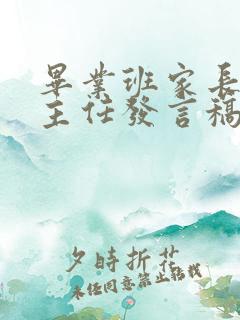 畢業班家長
主任發言稿
夕時折花
未經同意禁止轉載